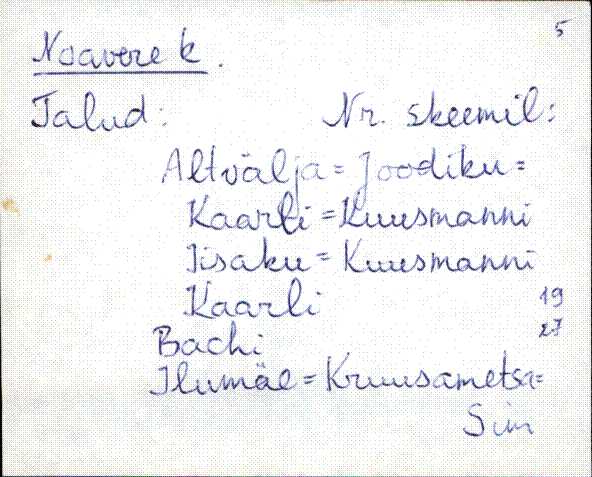 5
Noavere k.
Talud: Nr. skeemil:
Altvälja = Joodiku =
Kaarli = Kuusmanni
Iisaku = Kuusmanni
Kaarli 19
Bachi 27
Ilumäe = Kruusametsa =
Sim